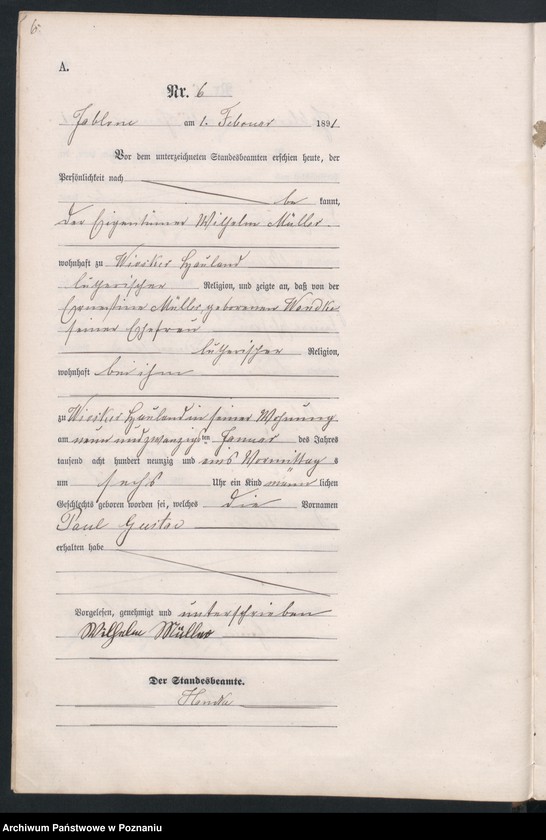 6
A.
Nr. 6
Jablone am 1. Februar 1891
Vor dem unterzeichneten Standesbeamten erschien heute, der
Persönlichkeit nach
be kannt,
der Eigentümer Wilhelm Müller
wohnhaft zu Hauland
lutherischer Religion, und zeigte an, daß von der
Ernestine Müller, geborenen
seiner Ehefrau
lutherischer Religion,
wohnhaft bei ihm
zu Hauland in seiner Wohnung
am neun und zwanzigsten Januar des Jahres
tausend acht hundert neunzig und eins Vormittag s
um sechs Uhr ein Kind männ lichen
Geschlechts geboren worden sei, welches die Vornamen
Paul Gustav
erhalten habe
Vorgelesen, genehmigt und unterschrieben
Wilhelm Müller
Der Standesbeamte.
Archiwum Państwowe w Poznaniu